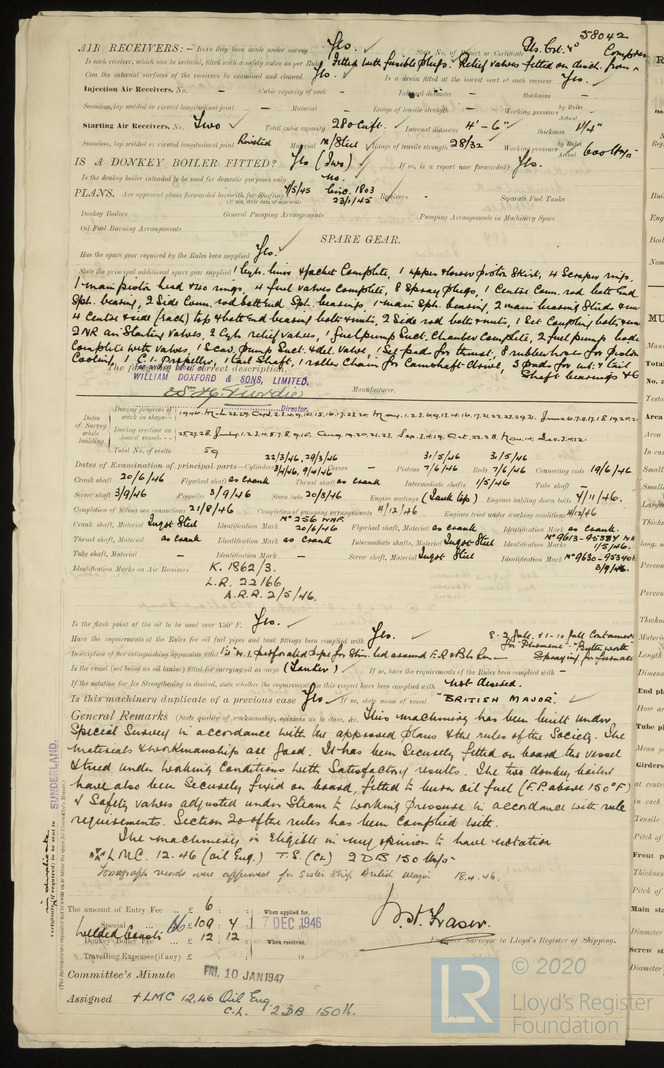 58042
AIR RECEIVERS:— Have they been made under survey Yes. State No. of Report or Certificate
Is each receiver, which can be isolated, fitted with a safety valve as per Rule Fitted with fusible plugs. Relief valves fitted on disch. from
Can the internal surfaces of the receivers be examined and cleaned Yes. Is a drain fitted at the lowest part of each receiver Yes.
Injection Air Receivers, No. — Cubic capacity of each — Internal diameter — thickness —
Seamless, lap welded or riveted longitudinal joint — Material — Range of tensile strength — Working pressure by Rules — Actual
Starting Air Receivers, No. Two Total cubic capacity 280 cu ft. Internal diameter 4'-6" thickness
Seamless, lap welded or riveted longitudinal joint Riveted Material M/Steel Range of tensile strength 28/32 Working pressure by Rules Actual 600
IS A DONKEY BOILER FITTED? Yes (Two) If so, is a report now forwarded? Yes.
Is the donkey boiler intended to be used for domestic purposes only no.
PLANS. Are approved plans forwarded herewith for Shafting 4/5/45 Circ. 1803 23/1/45 Receivers — Separate Fuel Tanks
(If not, state date of approval)
Donkey Boilers General Pumping Arrangements Pumping Arrangements in Machinery Space
Oil Fuel Burning Arrangements
SPARE GEAR.
Has the spare gear required by the Rules been supplied Yes.
State the principal additional spare gear supplied 1 Cyl. liner & jacket complete, 1 upper & lower piston skirt, 4 scraper rings.
1 main piston head & 40 rings, 4 fuel valves complete, 8 spray plugs, 1 centre conn. rod bott. end
Sph. bearing, 2 side conn. rod bott. end Sph. bearings, 1 main Sph. bearing, 2 main bearing studs & nuts
4 centre & side (each) top & bott. end bearing bolts & nuts, 2 side rod bolts & nuts, 1 set coupling bolts & nuts
2 NR air starting valves, 2 Cyl. relief valves, 1 fuel pump suct. chamber complete, 2 fuel pump body
complete with valves, 1 scav. pump suct. & del. valve, 1 set pads for thrust, 8 rubber hose for piston
cooling, 1 C.I. propeller, 1 tail shaft, 1 roller chain for camshaft drive, 3 pads for int. & tail
Shaft bearings &c
The foregoing is a correct description,
WILLIAM DOXFORD & SONS, LIMITED.
Director. Manufacturer.
Dates of Survey while building
During progress of work in shops--
During erection on board vessel---
Total No. of visits 59
Dates of Examination of principal parts—Cylinders 22/3/46, 29/3/46 3/4/46, 9/4/46 Covers — Pistons 31/5/46 7/6/46 Rods 31/5/46 7/6/46 Connecting rods 19/6/46
Crank shaft 20/6/46 Flywheel shaft as crank Thrust shaft as crank Intermediate shafts 1/5/46 Tube shaft —
Screw shaft 3/9/46 Propeller 3/9/46 Stern tube 20/8/46 Engine seatings (Tank top) Engines holding down bolts 4/11/46.
Completion of fitting sea connections 21/8/46 Completion of pumping arrangements 11/12/46 Engines tried under working conditions 11/12/46
Crank shaft, Material Ingot Steel Identification Mark No 256 WHF. 20/6/46 Flywheel shaft, Material as crank Identification Mark as crank.
Thrust shaft, Material as crank Identification Mark as crank Intermediate shafts, Material Ingot Steel Identification Marks 1/5/46.
Tube shaft, Material — Identification Mark — Screw shaft, Material Ingot Steel Identification Mark 3/9/46.
Identification Marks on Air Receivers K. 1862/3.
L.R. 22166
A.R.R. 2/5/46.
Is the flash point of the oil to be used over 150° F. Yes.
Have the requirements of the Rules for oil fuel pipes and tank fittings been complied with Yes.
Description of fire extinguishing apparatus fitted
Spraying for furnace
Is the vessel (not being an oil tanker) fitted for carrying oil as cargo (Tanker) If so, have the requirements of the Rules been complied with —
If the notation for Ice Strengthening is desired, state whether the requirements in this respect have been complied with not desired.
Is this machinery duplicate of a previous case Yes If so, state name of vessel "BRITISH MAJOR."
General Remarks (State quality of workmanship, opinions as to class, &c. This machinery has been built under
Special Survey in accordance with the approved plans & the rules of the Society. The
materials & workmanship are good. It has been securely fitted on board the vessel
& tried under working conditions with satisfactory results. The two donkey boilers
have also been securely fixed on board, fitted to burn oil fuel (F.P. above 150°F)
& Safety valves adjusted under steam to working pressure in accordance with rule
requirements. Section 20 of the rules has been complied with.
The machinery is eligible in my opinion to have notation
LMC. 12.46 (Oil Eng.) T.S. (CL) 2 DB 150 lbs
Torsiograph records were approved for sister ship British Major 18.4.46.
SUNDERLAND.
The amount of Entry Fee .. £ 6 : :
Special ... £ 109 : 4 :
Welded Const.
Donkey Boiler Fee ... £ 12 : 12 :
Travelling Expenses (if any) £ : :
When applied for,
17 DEC 1946
When received,
Engineer Surveyor to Lloyd's Register of Shipping.
Committee's Minute FRI. 10 JAN 1947
Assigned + LMC 12.46 Oil Eng
C.L. 2 DB 150 lb.
© 2020
LR
Lloyd's Register
Foundation